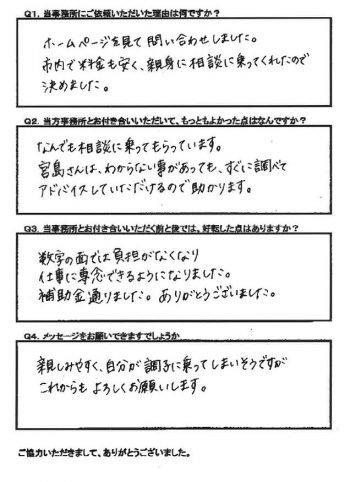 Q1. 当事務所にご依頼いただいた理由は何ですか？
ホームページを見て問い合わせしました。
市内で料金も安く、親身に相談に乗ってくれたので
決めました。
Q2. 当方事務所とお付き合いいただいて、もっともよかった点はなんですか？
なんでも相談に乗ってもらっています。
宮島さんは、わからない事があっても、すぐに調べて
アドバイスしていただけるので助かります。
Q3. 当事務所とお付き合いいただく前と後では、好転した点はありますか？
数字の面では負担がなくなり
仕事に専念できるようになりました。
補助金通りました。ありがとうございました。
Q4. メッセージをお願いできますでしょうか
親しみやすく、自分が調子に乗ってしまいそうですが
これからもよろしくお願いします。
ご協力いただきまして、ありがとうございました。